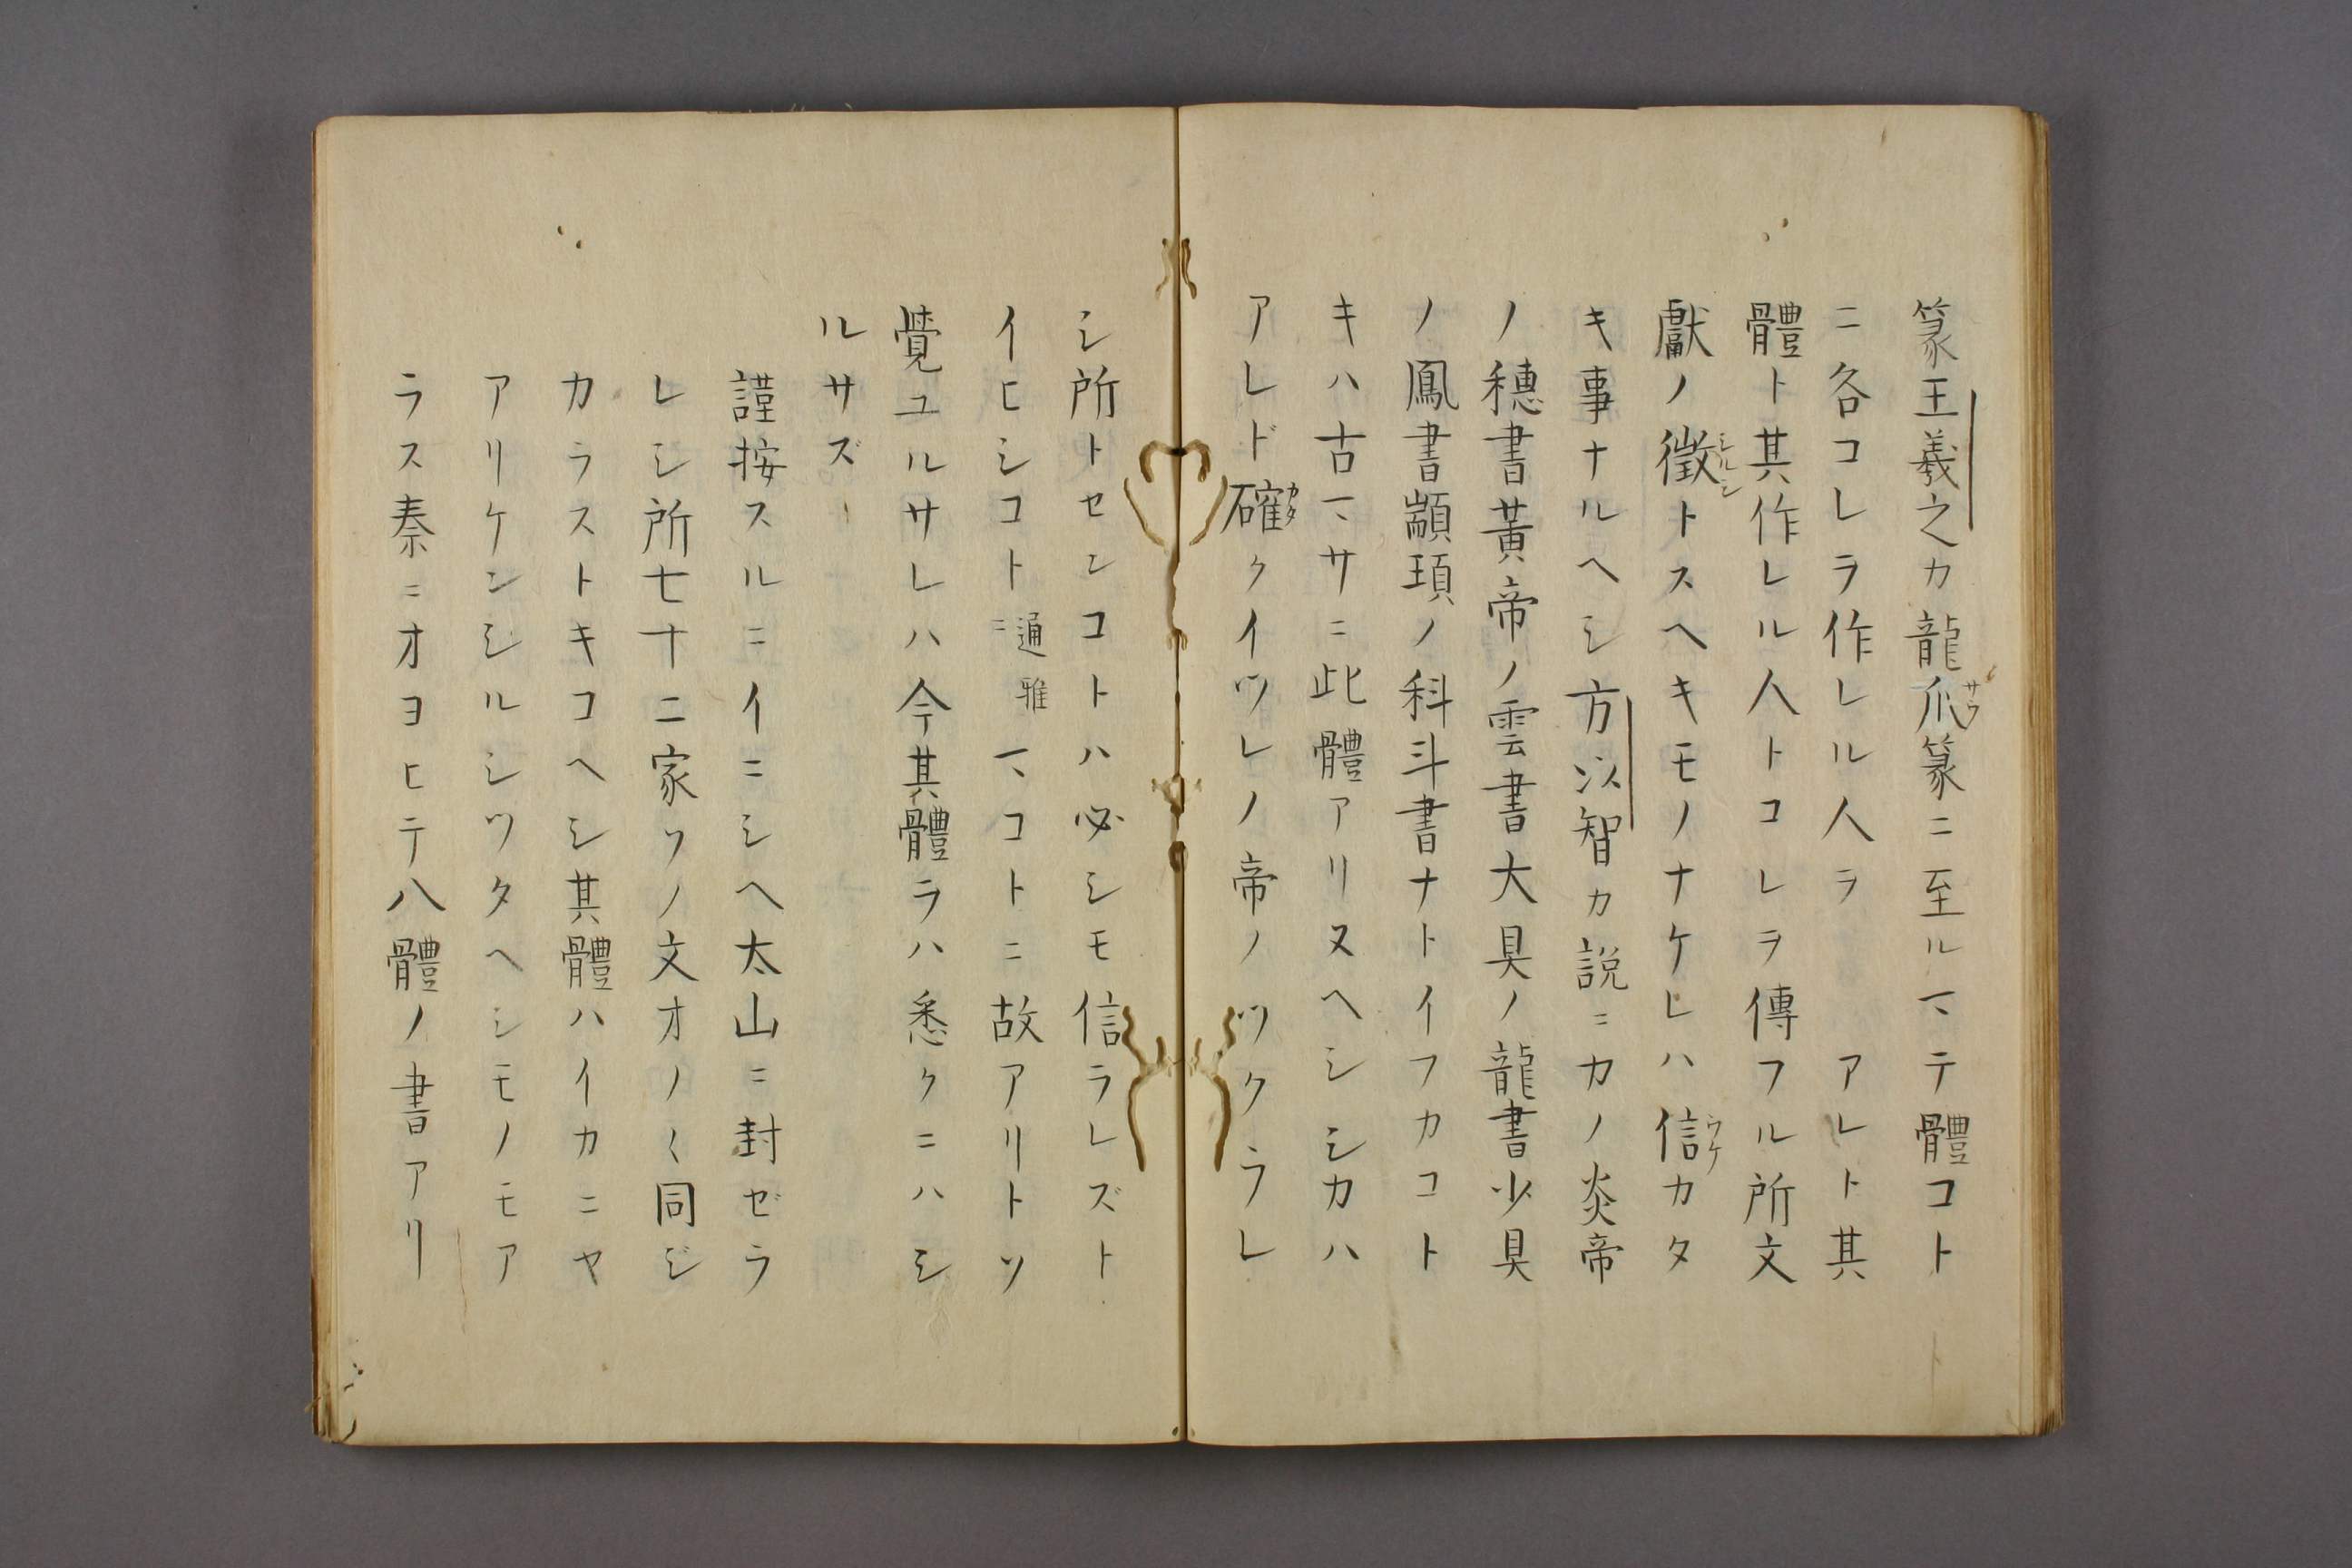 篆王羲之カ龍爪サウ篆ニ至ルマテ體コト
ニ各コレヲ作レル人ヲ　アレト其
體ト其作レル人トコレヲ傳フル所文
獻ノ徴シルシトスヘキモノナケレハ信ウケカタ
キ事ナルヘシ方以智カ説ニカノ炎帝
ノ穗書黃帝ノ雲書大昊ノ龍書少昊
ノ鳳書顓頊ノ科斗書ナトイフカコト
キハ古マサニ此體アリヌヘシシカハ
アレド確カタクイツレノ帝ノツクラレ
シ所トセンコトハ必シモ信ラレズト
イヒシコト通雅ニマコトニ故アリトソ
覺ユルサレハ今其體ヲハ悉クニハシ
ルサズ
謹按スルニイニシヘ太山ニ封ゼラ
レシ所七十二家ソノ文オノ〱同ジ
カラストキコヘシ其體ハイカニヤ
アリケンシルシツタヘシモノモア
ラス秦ニオヨヒテ八體ノ書アリ